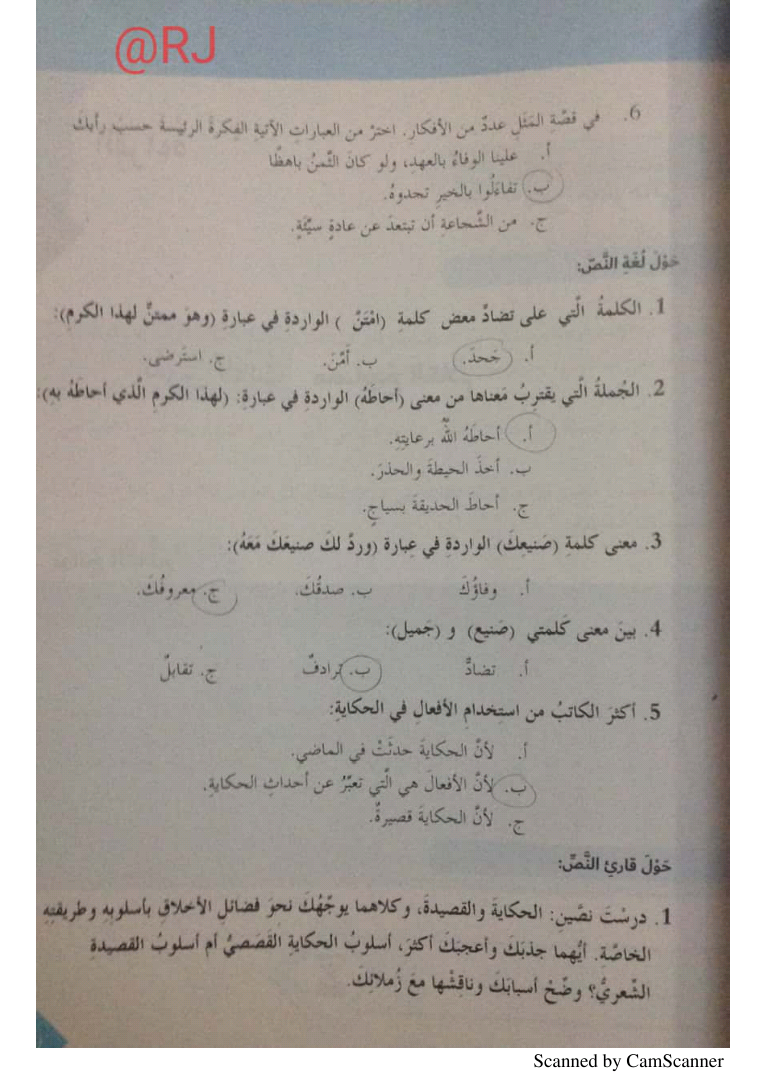 @RJ
6. في قصّةِ المَثَلِ عددٌ من الأفكارِ. اخترْ من العباراتِ الآتيةِ الفِكرةَ الرئيسةَ حسبَ رأيكَ
أ. علينا الوفاءُ بالعهدِ، ولو كانَ الثّمنُ باهظًا
ب. تفاءَلُوا بالخيرِ تجدوهُ.
ج. من الشّجاعةِ أن تبتعدَ عن عادةٍ سيّئةٍ.
حَوْلَ لُغَةِ النَّصِّ:
1. الكلمةُ الّتي على تضادٍّ معض كلمةِ (امْتَنّ ) الواردةِ في عبارةِ (وهوَ ممتنٌّ لهذا الكرمِ):
أ. جَحدَ. ب. أَمَّنَ. ج. استَرضى.
2. الجُملةُ الّتي يقتربُ مَعناها من معنى (أحاطَهُ) الواردةِ في عبارةِ: (لهذا الكرمِ الّذي أحاطَهُ بهِ):
أ. أحاطَهُ اللّٰهُ برعايتِهِ.
ب. أخذَ الحيطةَ والحذرَ.
ج. أحاطَ الحديقةَ بسياجٍ.
3. معنى كلمةِ (صَنيعِكَ) الواردةِ في عِبارةِ (وردِّ لكَ صنيعَكَ مَعَهُ):
أ. وفاؤُكَ ب. صدقُكَ. ج. معروفُكَ.
4. بينَ معنى كَلمتي (صَنيع) و (جَميل):
أ. تضادٌّ ب. ترادفٌ ج. تقابلٌ
5. أكثرَ الكاتبُ من استِخدامِ الأفعالِ في الحكايةِ:
أ. لأنّ الحكايةَ حدثَتْ في الماضي.
ب. لأنّ الأفعالَ هي الّتي تعبّرُ عن أحداثِ الحكايةِ.
ج. لأنّ الحكايةَ قصيرةٌ.
حَوْلَ قارئِ النَّصِّ:
1. درسْتَ نصَّينِ: الحكايةَ والقصيدةَ، وكلاهما يوجّهُكَ نحوَ فضائلِ الأخلاقِ بأسلوبِهِ وطريقتِهِ
الخاصّةِ. أيُّهما جذبَكَ وأعجبَكَ أكثرَ، أسلوبُ الحكايةِ القَصَصيُّ أم أسلوبُ القصيدةِ
الشّعريُّ؟ وضّحْ أسبابَكَ وناقِشْها معَ زُملائِكَ.
Scanned by CamScanner